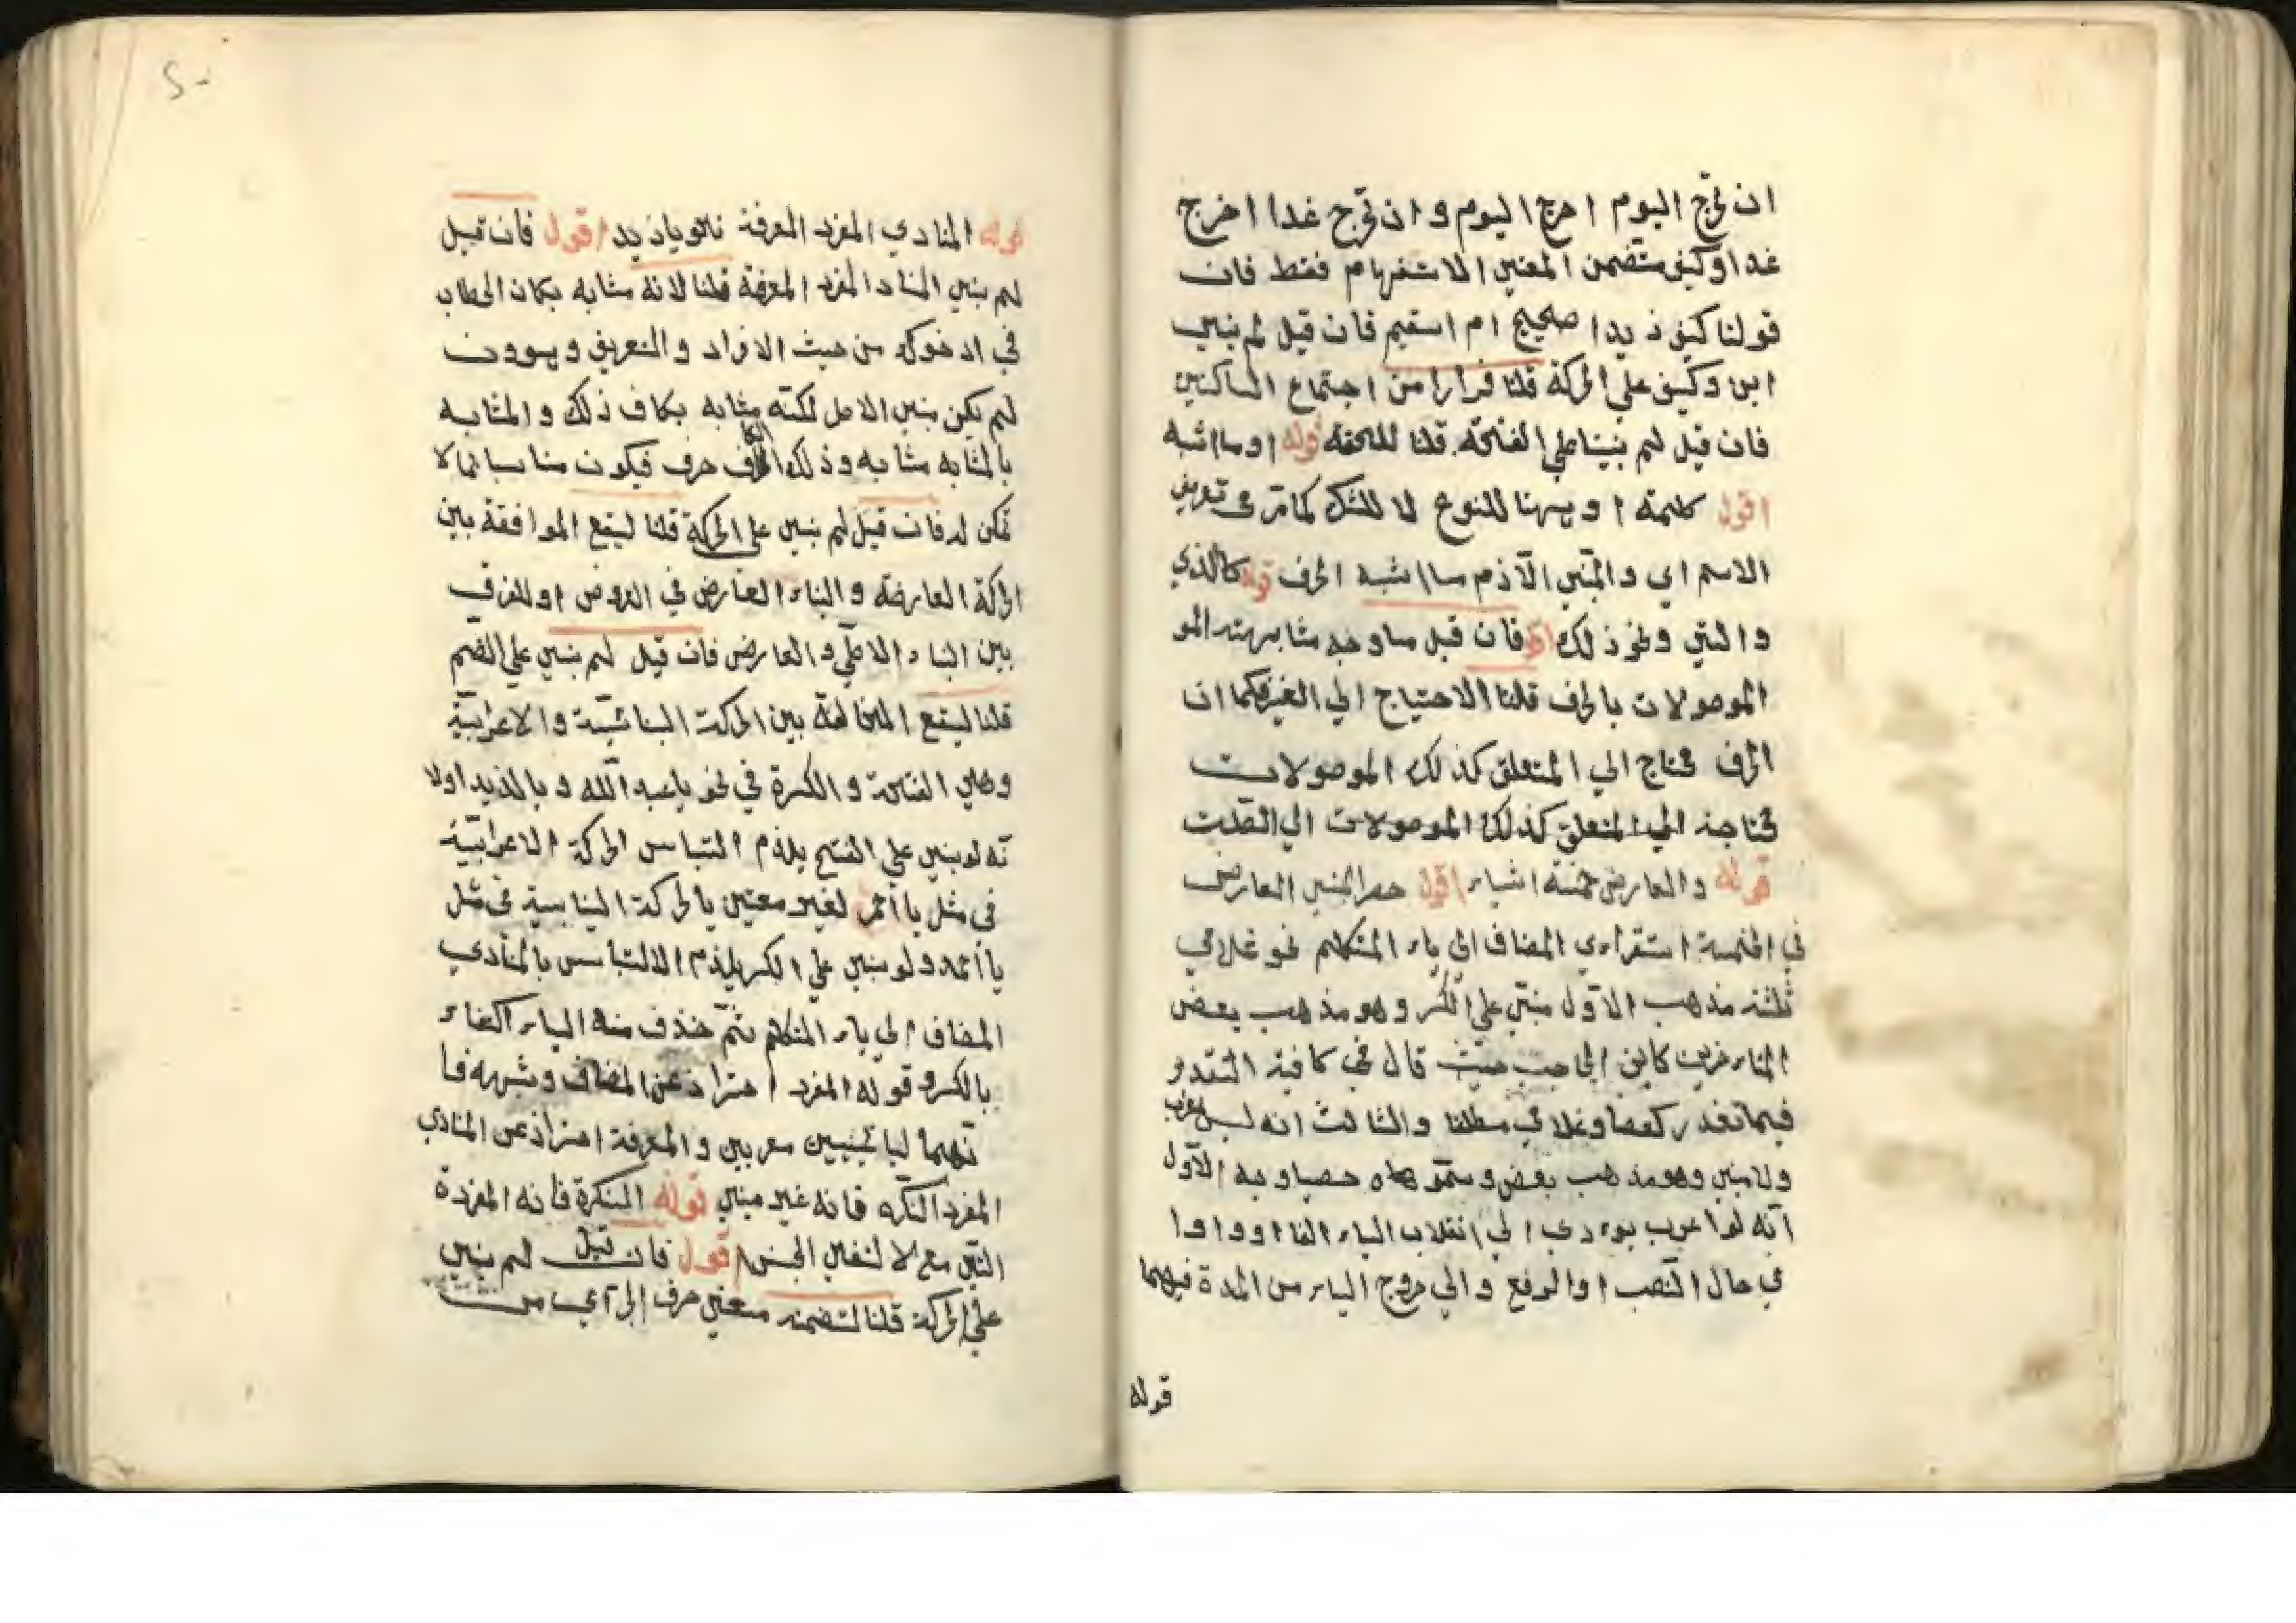 ان تخرج اليوم اخرج اليوم وان تخرج غدا اخرج
غدا وكيف متضمن المعني الاستفهام فقط فان
قولنا كيف زيدا صحيح ام سقيم فان قيل لم بني
اين وكيف علي الحركة قلنا فرارا من اجتماع الساكنين
فان قيل لم بنيتا علي الفتحة قلنا للخفة قوله او ما اشبه
اقول كلمة او ههنا للنوع لا للشك كما مر في تعريف
الاسم اي والمبني الآزم ما اشبه الحرف قوله كالذي
والتي ونحو ذلك فان قيل ما وجه مشابهته المو
الموصولات بالحرف قلنا الاحتياج الي الغير فكما ان
الحرف محتاج الي المتعلق كذلك الموصولات
محتاجة الي المتعلق كذلك الموصولات الي الصلت
قوله والعارض خمسة اشياء اقول حصر المبني العارض
في الخمسة استقراءي المضاف الي ياء المتكلم نحو غلامي
ثلثة مذهب الاول مبني علي الكسر وهو مذهب بعض
المتاءخرين كابن الحاجب حيث قال في كافية التقدير
فيما تعذر كعصا وغلامي مطلقا والثالث انه ليس بمعرب
ولا مبني وهو مذهب بعض وسموهاه خصيا وجه الاول
انه لو اعرب يوءدي الي انقلاب الياء الفا او واوا
في حال النصب او الرفع والي خروج الياء من المدة فيهما
قوله
قوله المنادي المفرد المعرفة نحو يا زيد اقول فان قيل
لم بني المناد المفرد المعرفة قلنا لانه مشابه بكاف الخطاب
في ادعوك من حيث الافراد والتعريف وهو وان
لم يكن مبني الاصل لكنه مشابه بكاف ذلك والمشابه
بالمشابه مشابه وذلك الكاف حرف فيكون مناسبا لما لا
تمكن له فان قيل لم بني علي الحركة قلنا ليقع الموافقة بين
الحركة العارضة والبناء العارض في العروض او للفرق
بين البناء الاصلي والعارض فان قيل لم بني علي الضم
قلنا ليقع المخالفة بين الحركة البنائية والاعرابية
وهي الفتحة والكسرة في نحو يا عبد الله و يا لزيد اولا
نه لو بني علي الفتح يلزم التباس الحركة الاعرابية
في مثل يا احمر لغير معين بالحركة البناسية في مثل
يا احمد ولو بني علي الكسر يلزم الالتباس بالمنادي
المضاف الي ياء المتكلم ثم حذف منه الياء اكتفاء
بالكسر وقوله المفرد احتراز عن المضاف وشبهه فا
نهما ليا مبنيين معربين والمعرفة احتراز عن المنادي
المفرد النكره فانه غير مبني قوله النكرة فانه المفردة
التي مع لا لنفي الجنس اقول فان قيل لم بني
علي الحركة قلنا لتضمنه معني حرف الي آعي من